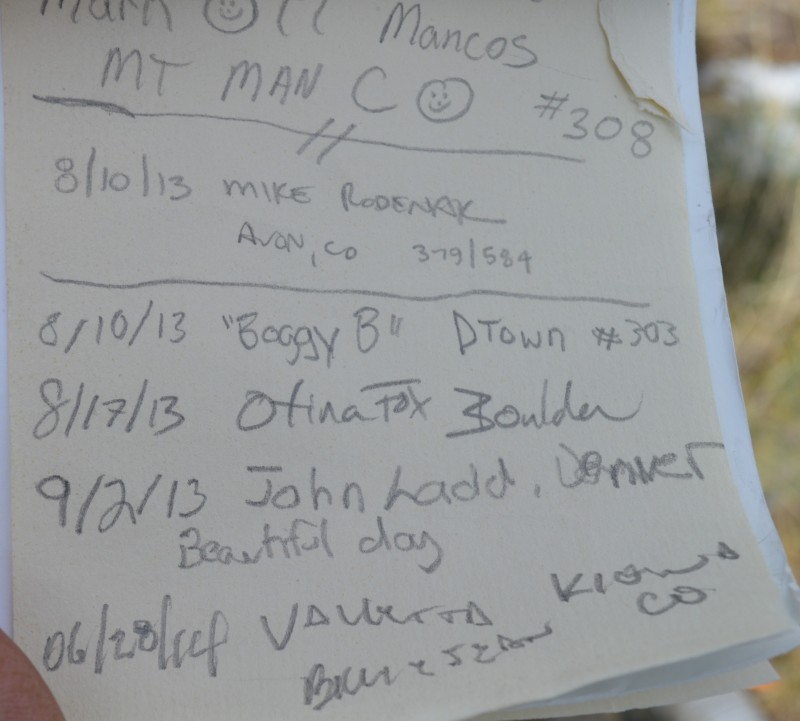 Mancos
MT MAN CO #308
8/10/13 MIKE RODENAK
AVON, CO 379/584
8/10/13 "Boggy B" DTOWN #303
8/17/13 Otina Fox Boulder
9/2/13 John Ladd, Denver
Beautiful day
06/28/14 KIOWA
CO